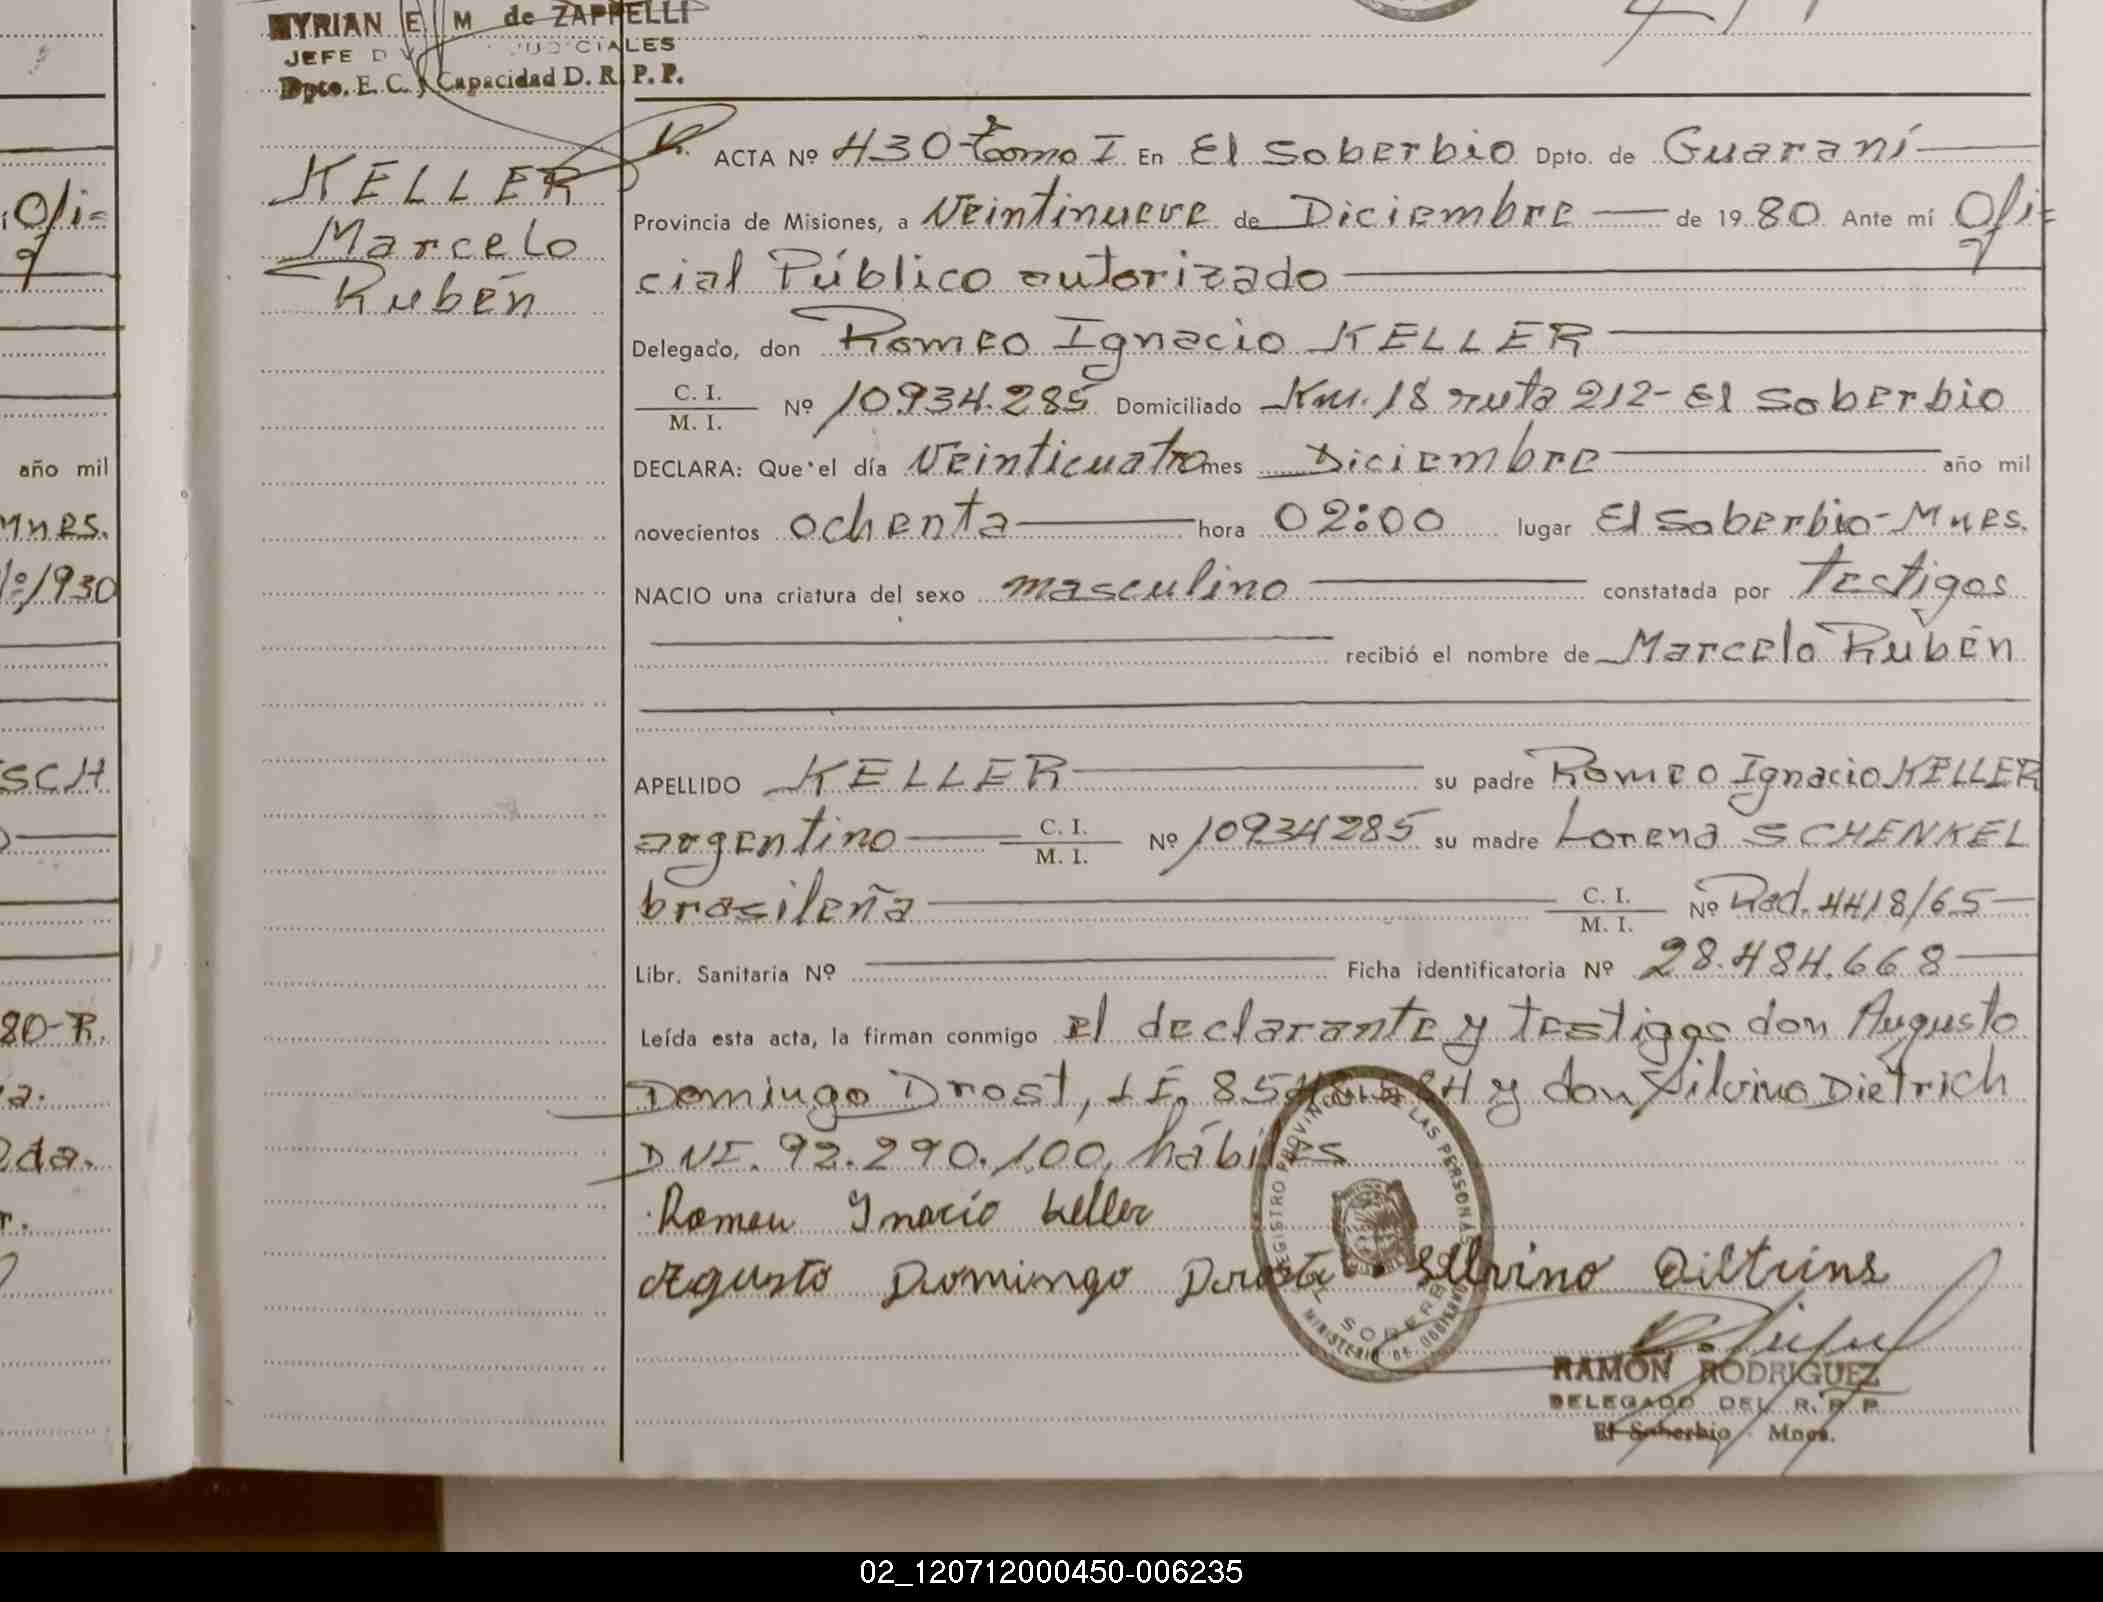 MYRIAN E. M de ZAPPELLI
JEFE DIV JUDICIALES
Dpto. E. C. y Capacidad D. R. P. P.
KELLER
Marcelo
Rubén
ACTA Nº 430 tomo I En El Soberbio Dpto. de Guaraní
Provincia de Misiones, a Veintinueve de Diciembre de 1980 Ante mí Ofi=
cial Público autorizado
Delegado, don Romeo Ignacio KELLER
C. I.
M. I. Nº 10.934.285 Domiciliado Km. 18 ruta 212- El Soberbio
DECLARA: Que el día Veinticuatro mes Diciembre año mil
novecientos ochenta hora 02:00 lugar El Soberbio - Mnes.
NACIO una criatura del sexo masculino constatada por testigos
recibió el nombre de Marcelo Rubén
APELLIDO KELLER su padre Romeo Ignacio KELLER
argentino C. I.
M. I. Nº 10934285 su madre Lorena SCHENKEL
brasileña C. I.
M. I. Nº Rad. 4418/65
Libr. Sanitaria Nº Ficha identificatoria Nº 28.484.668
Leída esta acta, la firman conmigo el declarante y testigos don Augusto
Domingo Drost, L.E. y don Silvino Dietrich
DNI. 92.290.100, hábiles
Romeu Inacio Keller
Agusto Domingo Selvino
REGISTRO PROVINCIAL DE LAS PERSONAS
EL SOBERBIO
MINISTERIO DE GOBIERNO
RAMON RODRIGUEZ
DELEGADO DEL R. P. P.
El Soberbio - Mnes.
Ofi=
año mil
Mnes.
1930
SCH
80-R.
a.
2da.
r.
02_120712000450-006235